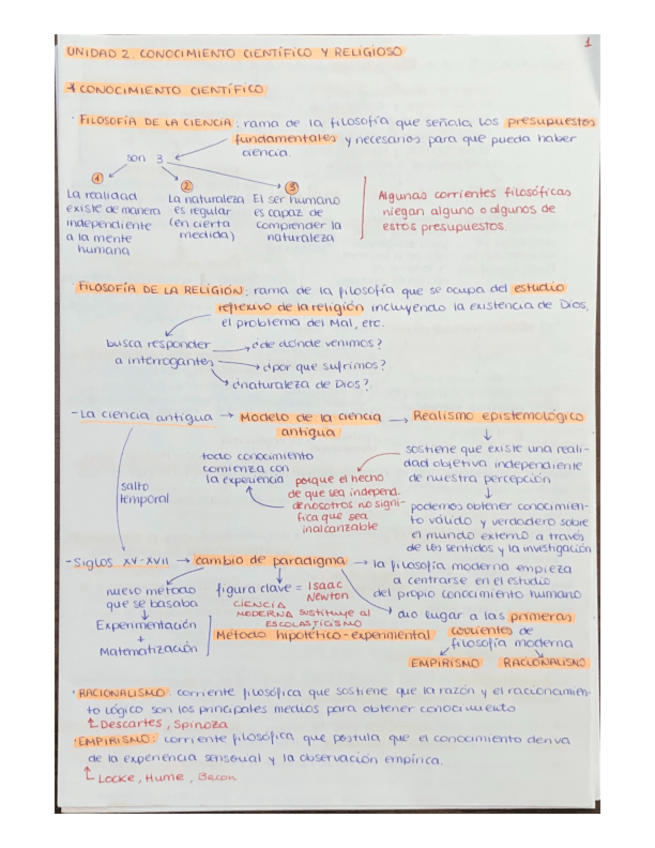 1
UNIDAD 2. CONOCIMIENTO CIENTÍFICO Y RELIGIOSO
* CONOCIMIENTO CIENTÍFICO
· FILOSOFÍA DE LA CIENCIA: rama de la filosofía que señala los presupuestos
fundamentales y necesarios para que pueda haber
ciencia.
son 3
1
La realidad
existe de manera
independiente
a la mente
humana
2
La naturaleza
es regular
(en cierta
medida)
3
El ser humano
es capaz de
comprender la
naturaleza
Algunas corrientes filosóficas
niegan alguno o algunos de
estos presupuestos.
· FILOSOFÍA DE LA RELIGIÓN: rama de la filosofía que se ocupa del estudio
reflexivo de la religión incluyendo la existencia de Dios,
el problema del Mal, etc.
busca responder
a interrogantes
¿de dónde venimos?
¿por que sufrimos?
¿naturaleza de Dios?
- La ciencia antigua → Modelo de la ciencia
antigua
→ Realismo epistemológico
sostiene que existe una reali-
dad objetiva independiente
de nuestra percepción
podemos obtener conocimien-
to válido y verdadero sobre
el mundo externo a través
de los sentidos y la investigación
porque el hecho
de que sea independ.
de nosotros no signi-
fica que sea
inalcanzable
todo conocimiento
comienza con
la experiencia
salto
temporal
- Siglos XV-XVII → cambio de paradigma → la filosofía moderna empieza
a centrarse en el estudio
del propio conocimiento humano
nuevo método
que se basaba
Experimentación
+
Matematización
figura clave = Isaac
Newton
CIENCIA
MODERNA sustituye al
ESCOLASTICISMO
Método hipotético-experimental
dio lugar a las primeras
corrientes de
filosofía moderna
EMPIRISMO RACIONALISMO
· RACIONALISMO: corriente filosófica que sostiene que la razón y el racionamien-
to lógico son los principales medios para obtener conocimiento
Descartes, Spinoza
· EMPIRISMO: corriente filosófica que postula que el conocimiento deriva
de la experiencia sensorial y la observación empírica.
Locke, Hume, Bacon